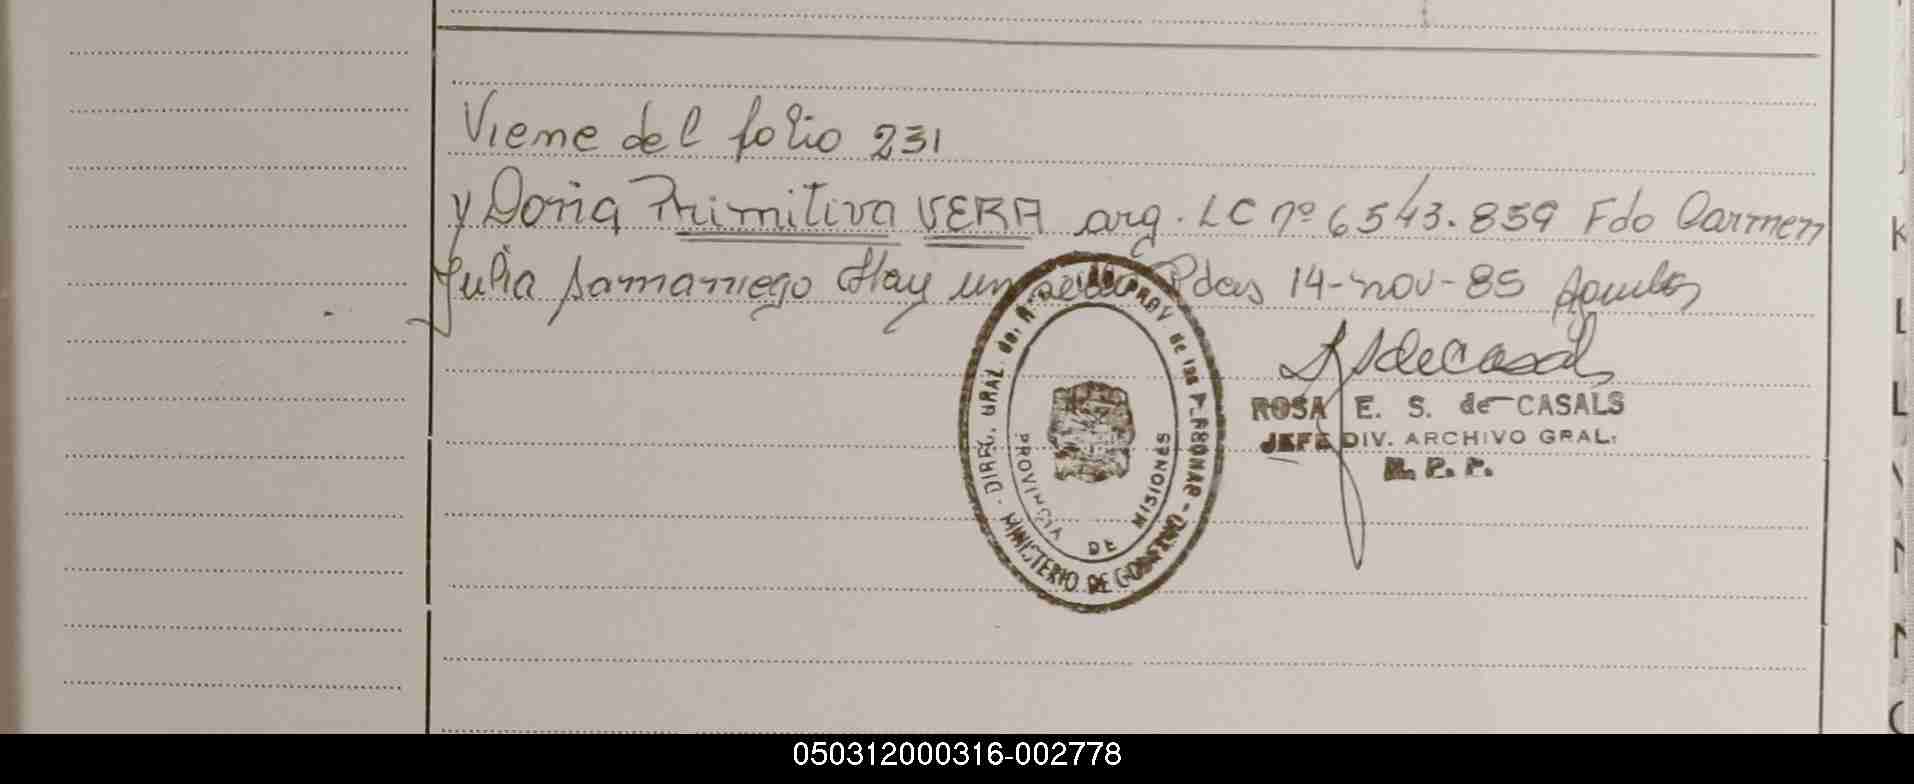 Viene del folio 231
y Doña Primitiva VERA arg. LC nº 6543.859 Fdo Carmen
Julia Samaniego Hay un sello Pdas 14-nov-85
ROSA E. S. de CASALS
JEFE DIV. ARCHIVO GRAL.
R. P. P.
DIREC. GRAL. del PROV. de las PERSONAS - MINISTERIO DE GOBIERNO
PROVINCIA DE MISIONES
050312000316-002778